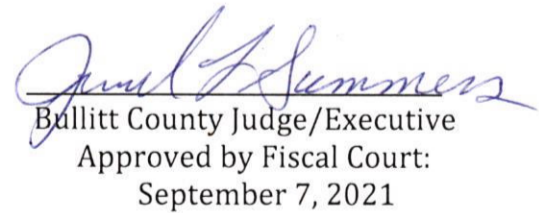 Summers
Bullitt County Judge/Executive
Approved by Fiscal Court:
September 7, 2021